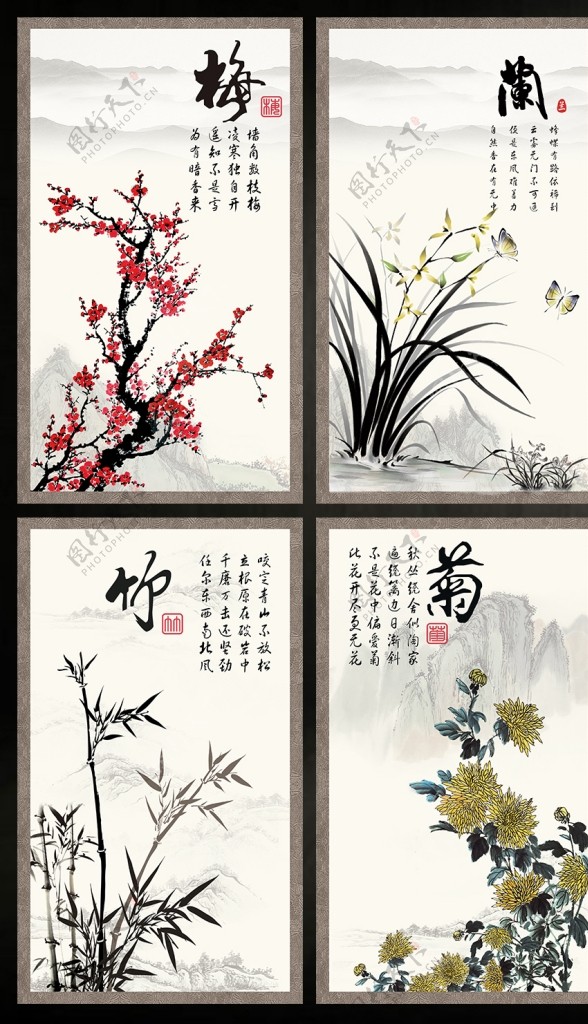 梅
梅
墙角数枝梅
凌寒独自开
遥知不是雪
为有暗香来
蘭
蜂蝶有路依稀到
云雾无门不可通
便是东风难着力
自然香在有无中
竹
竹
咬定青山不放松
立根原在破岩中
千磨万击还坚劲
任尔东西南北风
菊
菊
秋丛绕舍似陶家
遍绕篱边日渐斜
不是花中偏爱菊
此花开尽更无花
图行天下
PHOTOPHOTO.CN